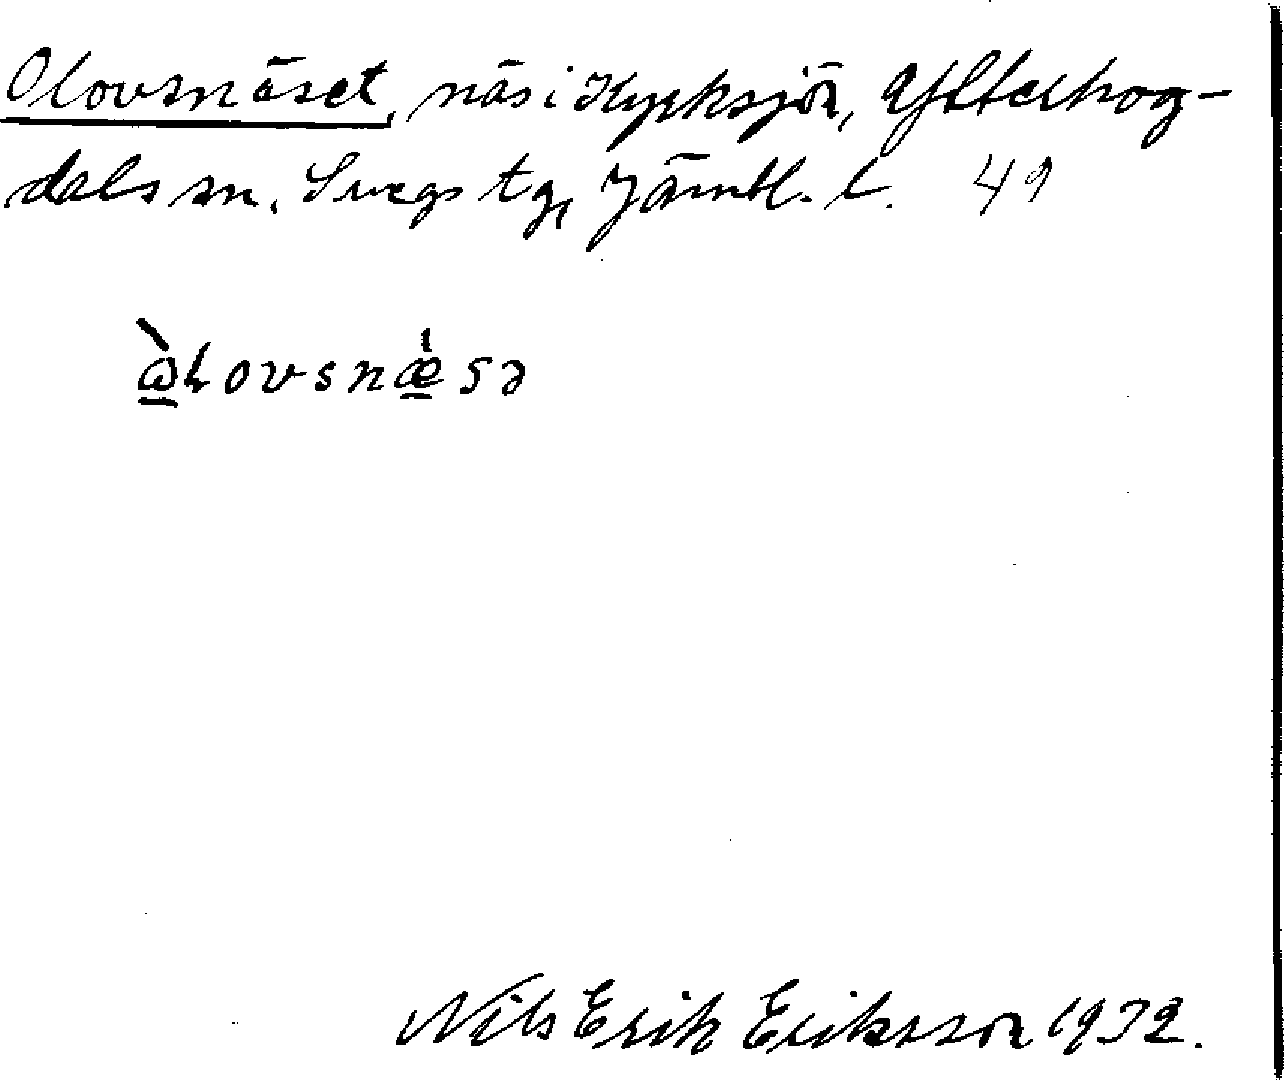 Olovsnäset, näs i Kyrksjön, Ytterhog-
dals sn. Svegs tg, Jämtl. l. 49
ὼɬovsnæ̀sə
Nils Erik Eriksson 1932.